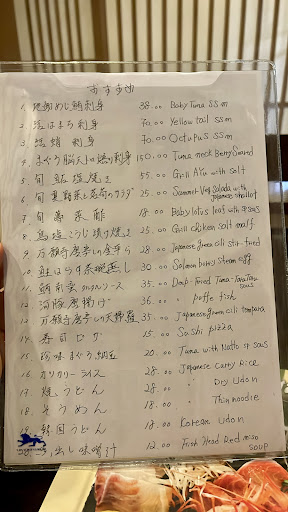 おすすめ
1. 刺身 38.00 Baby Tuna SSM
2. 活はまち刺身 70.00 Yellow tail SSM
3. 活蛸 刺身 70.00 Octopus SSM
4. まぐろ脳天 刺身 150.00 Tuna neck Berry Seared
5. 旬 鮎塩焼き 55.00 Grill AYU with Salt
6. 旬 夏野菜と茗荷のサラダ 25.00 Summer Veg Salad with Japanese shallot
7. 旬 酢 18.00 Baby lotus leaf with
8. 焼き 29.00 Grill chicken salt
9. 万願寺唐辛子の金平 28.00 Japanese green chili stir-fried
10. 鮭はらす 蒸し 30.00 Salmon belly steam egg
11. 35.00 Deep-fried Tuna-
12. 河豚唐揚げ 36.00 〃 puffer fish
13. 万願寺唐辛子の天婦羅 35.00 Japanese green chili tempura
14. 寿司ピザ 15.00 Sushi pizza
15. 珍味 まぐろ納豆 20.00 Tuna with Natto
16. カリカリーライス 28.00 Japanese Curry Rice
17. 焼うどん 28.00 〃 Dry Udon
18. そうめん 18.00 〃 Thin noodle
19. 韓国うどん 18.00 Korean udon
出し味噌汁 12.00 Fish Head Red miso soup